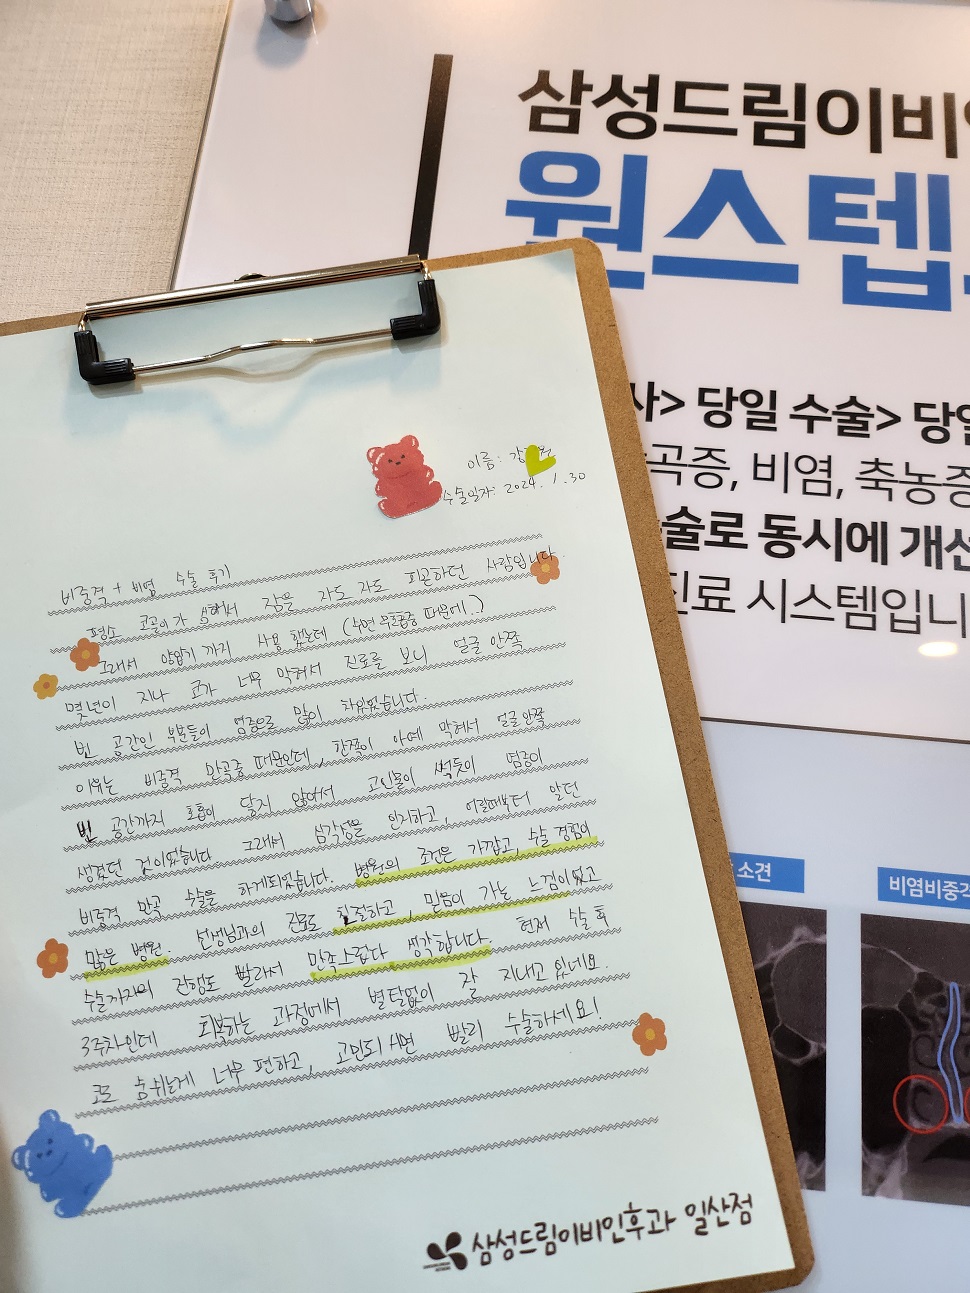 삼성드림이비
원스텝
사> 당일 수술> 당일
곡증, 비염, 축농증
술로 동시에 개선
진료 시스템입니
소견
비염비중격
이름: 강
수술일자: 2024. 1. 30
비중격 + 비염 수술 후기
평소 코골이가 심해서 잠을 자도 자도 피곤하던 사람입니다.
그래서 양압기 까지 사용 했는데 (수면 무호흡증 때문에..)
몇년이 지나 코가 너무 막혀서 진료를 보니 얼굴 안쪽
빈 공간인 부분들이 염증으로 많이 차있었습니다.
이유는 비중격 만곡증 때문인데, 한쪽이 아예 막혀서 얼굴 안쪽
빈 공간까지 호흡이 닿지 않아서 고인물이 썩듯이 염증이
생겼던 것이었습니다. 그래서 심각성을 인지하고, 어릴때부터 앓던
비중격 만곡 수술을 하게되었습니다. 병원의 조건은 가깝고, 수술 경험이
많은 병원. 선생님과의 진료도 친절하고, 믿음이 가는 느낌이었고
수술까지의 진행도 빨라서 만족스럽다 생각합니다. 현재 수술 후
3주차인데 회복하는 과정에서 별탈없이 잘 지내고 있네요.
코로 숨쉬는게 너무 편하고, 고민되시면 빨리 수술하세요!
삼성드림이비인후과 일산점